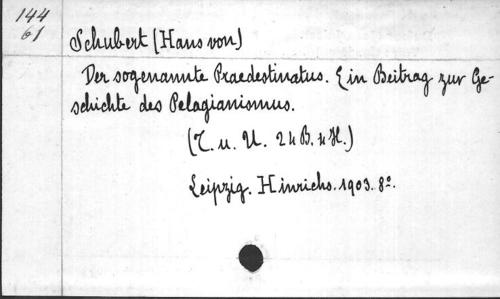 144
61
Schubert (Hans von)
Der sogenannte Praedestinatus. Ein Beitrag zur Ge-
schichte des Pelagianismus.
(T. u. U. 24 B. 4 H.)
Leipzig. Hinrichs. 1903. 8º.